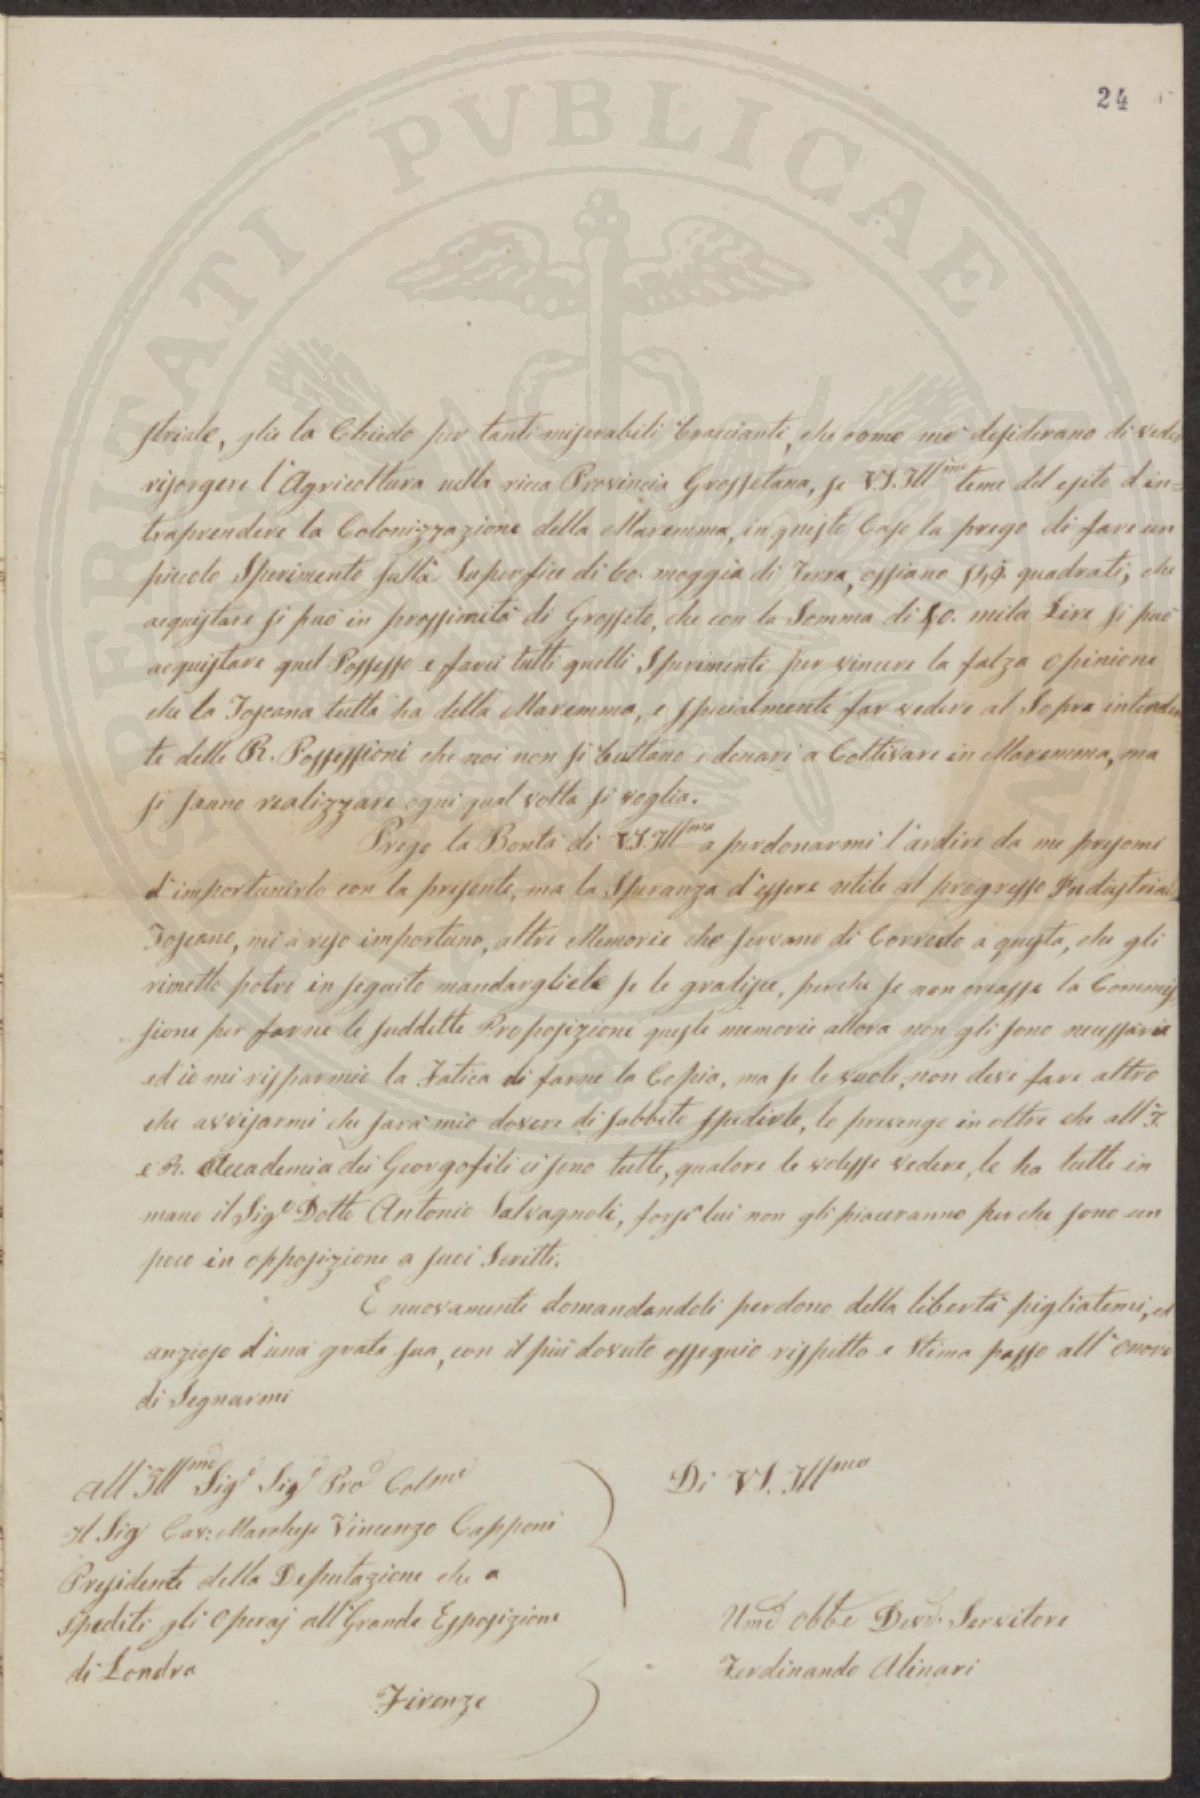 24
striale, glie la Chiedo per tanti miserabili braccianti, che come me desiderano di veder
risorgere l'Agricoltura nella ricca Provincia Grossetana, se V.S. Illma teme del esito d'in=
traprendere la Colonizzazione della Maremma, in questo Caso la prego di fare un
piccolo Sperimento sulla Superfice di 60. moggia di Terra, ossiano quadrati, che
acquistare si può in prossimità di Grosseto, che con la Somma di 50. mila Lire si può
acquistare quel Possesso e farci tutti quelli Sperimenti per vincere la falza opinione
che la Toscana tutta ha della Maremma, e specialmente far vedere al Sopra intenden
te delle R. Possessioni che noi non si buttano i denari a Coltivare in Maremma, ma
si fanno realizzare ogni qual volta si voglia.
Prego la Bontà di V.S. Illma a perdonarmi l'ardire da me presomi
d'importunirlo con la presente, ma la Speranza d'essere utile al progresso Industriale
Toscano, mi à reso importuno, altre Memorie che servano di Corredo a questa, che gli
rimetto potrò in seguito mandargliele se le gradisce, perche se non creasse la Commis
sione per farne le suddette Proposizione queste memorie allora non gli sono necessarie
ed io mi risparmio la Fatica di farne la Copia, ma se le vuole, non deve fare altro
che avvisarmi che sarà mio dovere di subbito spedirle, lo prevengo in oltre che all'I.
e R. Accademia dei Georgofili ci sono tutte, qualora le volesse vedere, le ha tutte in
mano il Sige Dotto Antonio Salvagnoli, forse lui non gli piaceranno perche sono un
poco in opposizione a suoi Scritti.
E nuovamente domandandoli perdono della libertà pigliatemi, ed
anzioso d'una grata sua, con il più dovuto ossequio rispetto e stima passo all'onore
di Segnarmi
All'Illmo Sige Sige Pro Colmo
Il Sig Cav: Marchese Vincenzo Capponi
Presidente della Deputazione che a
spediti gli Operaj all'Grande Esposizione
di Londra
Firenze
Di V.S. Illma
Umo Obbo Devo. Servitore
Ferdinando Alinari
PERITATI PVBLICAE